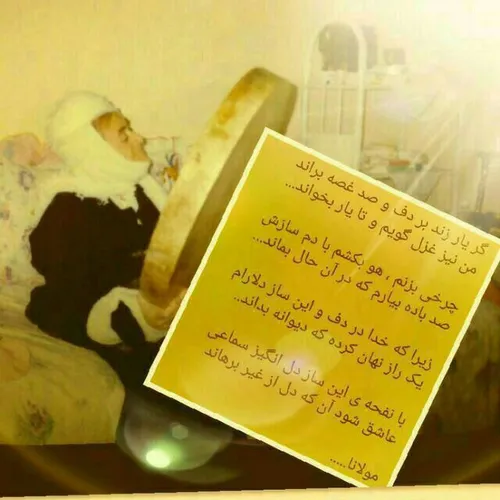 گر یار زند بر دف و صد غصه براند
من نیز غزل گویم و تا یار بخواند...
چرخی بزنم , هو بکشم با دم سازش
صد باده بیارم که در آن حال بماند...
زیرا که خدا در دف و این ساز دلارام
یک راز نهان کرده که دیوانه بداند..
با نفحه ی این ساز دل انگیز سماعی
عاشق شود آن که دل از غیر برهاند
مولانا.....